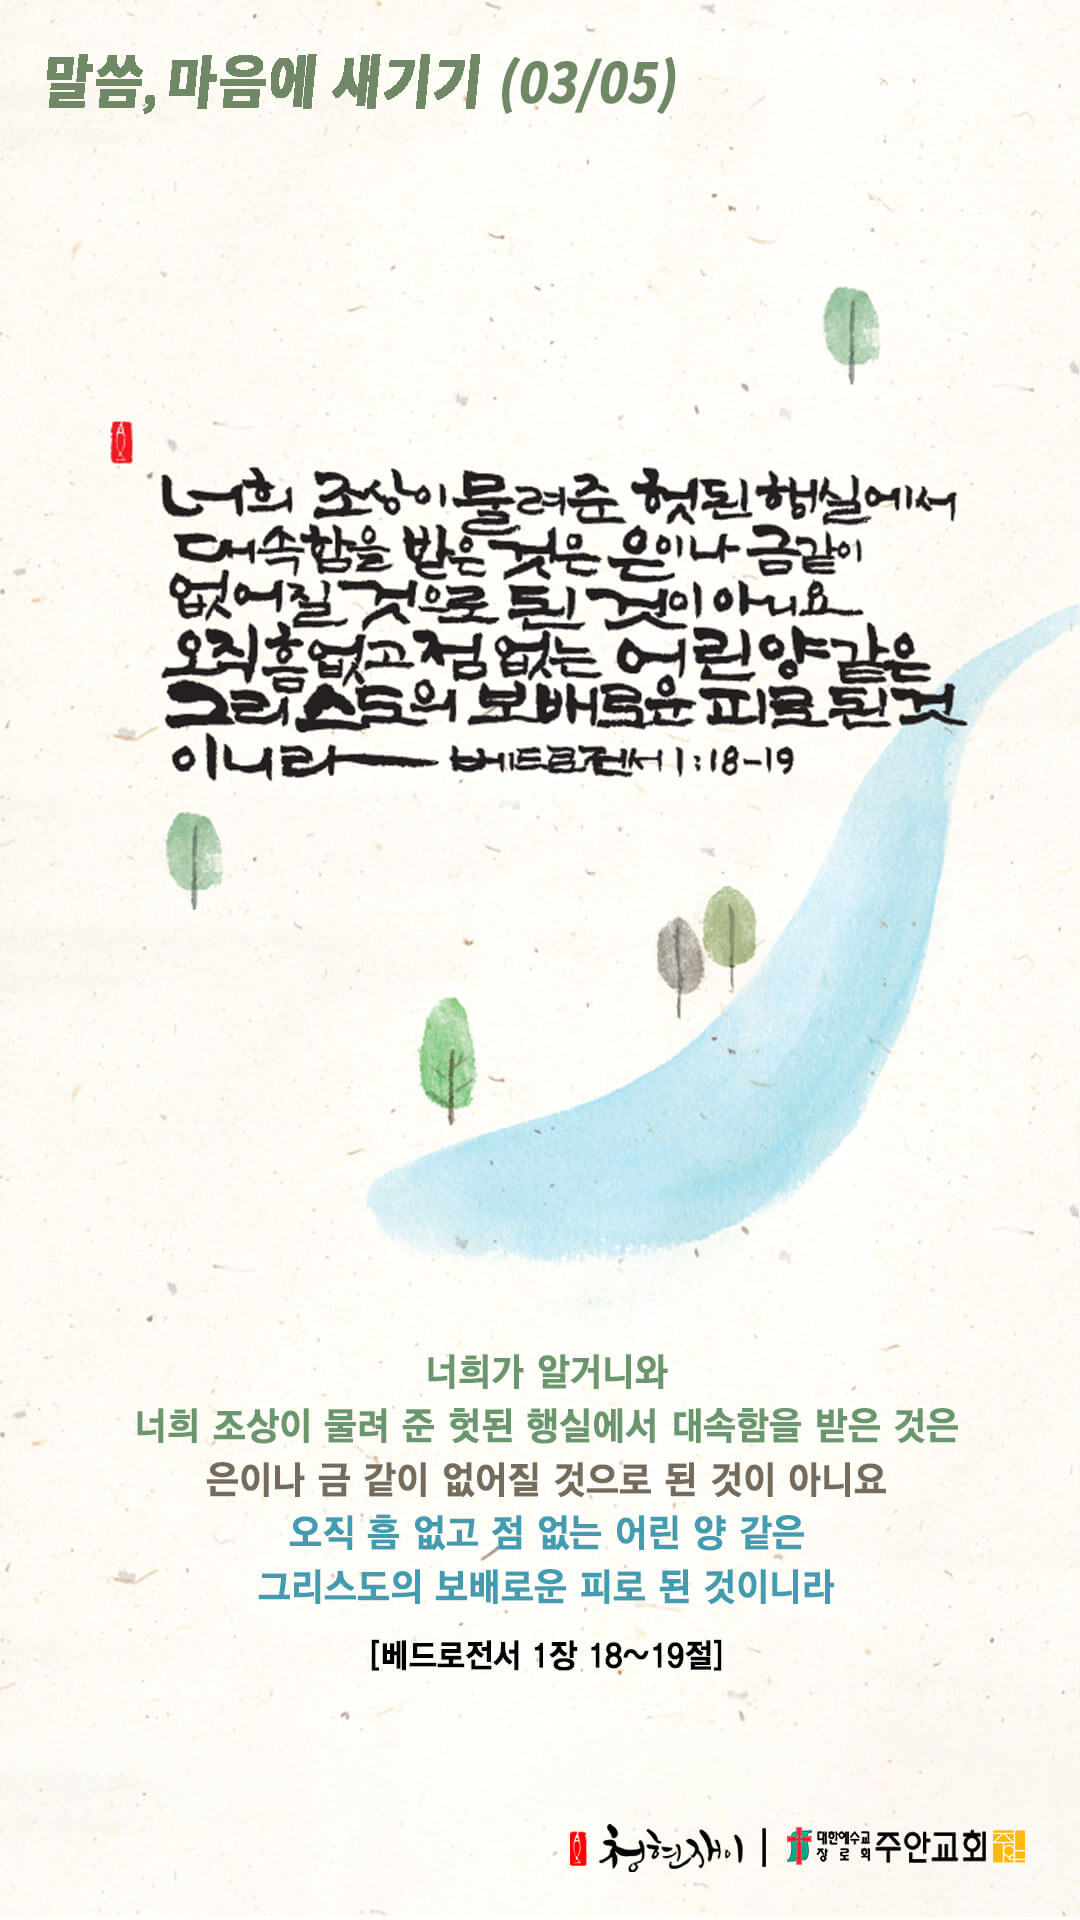 말씀, 마음에 새기기 (03/05)
너희 조상이 물려준 헛된 행실에서
대속함을 받은 것은 은이나 금같이
없어질 것으로 된 것이 아니요
오직 흠없고 점 없는 어린 양 같은
그리스도의 보배로운 피로 된 것
이니라 베드로전서 1:18-19
너희가 알거니와
너희 조상이 물려 준 헛된 행실에서 대속함을 받은 것은
은이나 금 같이 없어질 것으로 된 것이 아니요
오직 흠 없고 점 없는 어린 양 같은
그리스도의 보배로운 피로 된 것이니라
[베드로전서 1장 18~19절]
청현재이 | 대한예수교 장로회 주안교회